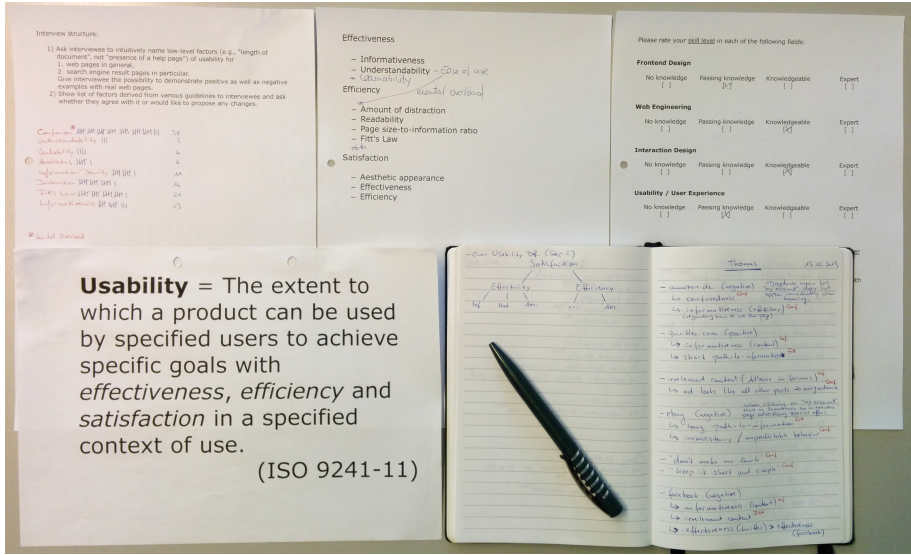 Interview structure:
1) Ask interviewee to intuitively name low-level factors (e.g., "length of
document", not "presence of a help page") of usability for
1. web pages in general,
2. search engine result pages in particular.
Give interviewee the possibility to demonstrate positive as well as negative
examples with real web pages.
2) Show list of factors derived from various guidelines to interviewee and ask
whether they agree with it or would like to propose any changes.
Confusion
Understandability III
Readability IIII 4
Aesthetics
Information Density
Distraction
Fitt's Law
Informativeness
* mental overload
Effectiveness
– Informativeness
– Understandability – Ease of use
– Learnability
Efficiency mental overload
– Amount of distraction
– Readability
– Page size-to-information ratio
– Fitt's Law
Satisfaction
– Aesthetic appearance
– Effectiveness
– Efficiency
Please rate your skill level in each of the following fields:
Frontend Design
No knowledge Passing knowledge Knowledgeable Expert
[ ] [X] [ ] [ ]
Web Engineering
No knowledge Passing knowledge Knowledgeable Expert
[ ] [ ] [X] [ ]
Interaction Design
No knowledge Passing knowledge Knowledgeable Expert
[ ] [ ] [X] [ ]
Usability / User Experience
No knowledge Passing knowledge Knowledgeable Expert
[ ] [X] [ ] [ ]
Usability = The extent to
which a product can be used
by specified users to achieve
specific goals with
effectiveness, efficiency and
satisfaction in a specified
context of use.
(ISO 9241-11)
– Own Usability Def.
Satisfaction
Effectivity Efficiency
Inf. ... Aes.
Thomas
– amazon.de (negative)
↳ confusedness Conf
↳ informativeness
– twitter.com (positive)
↳ informativeness (content) Inf
↳ short path-to-information Fitt
– irrelevant content
↳ ad looks like all other posts
– ebay (negative)
↳ long path-to-information Fitt
↳ inconsistency / unpredictable behavior Conf
– "don't make me think" Conf
– "keep it short and simple" Conf
– facebook (negative)
↳ informativeness (content) Inf
↳ irrelevant content
↳ effectiveness (twitter) > effectiveness
(facebook)